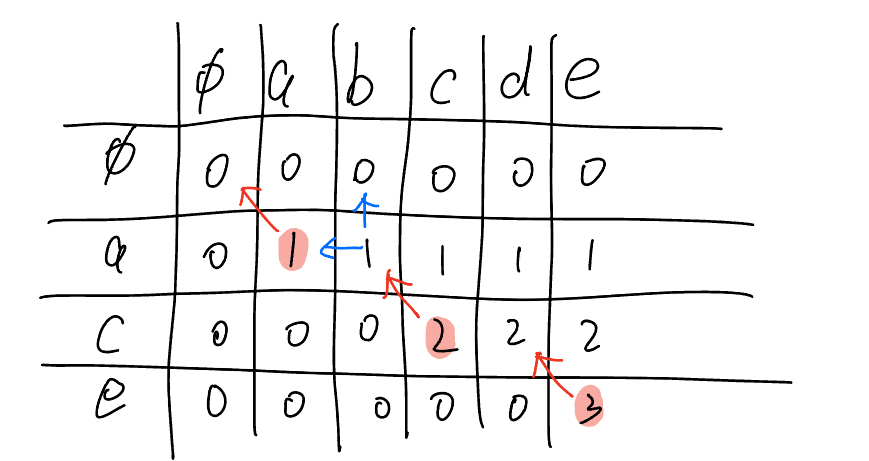 ϕ a b c d e
ϕ 0 0 0 0 0 0
a 0 1 1 1 1 1
c 0 0 0 2 2 2
e 0 0 0 0 0 3